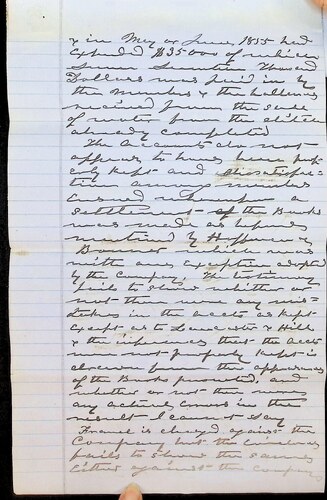 & in May or June 1855 had
expended $35000 of which
Some Seventeen Thousand
Dollars was paid in by
the Members & the ballance
received from the sale
of water from the ditch
already completed
The Accounts do not
appear to have been prop
erly kept and dissatisfac
tion among members
ensued whereupon a
settlement of the Books
was made as before
mentioned by Hoffman &
which was
with one exception adopted
by the Company. The testimony
fails to show whether or
not there were any mis-
takes in the accts as kept
Except as to & Hill
& the inference that the accts
were not properly kept is
drawn from the appearance
of the Books presented, and
whether or not there were
any actual errors in the
result I cannot say
Fraud is charged against the
Company but the evidence
fails to show the same
Either against the Company